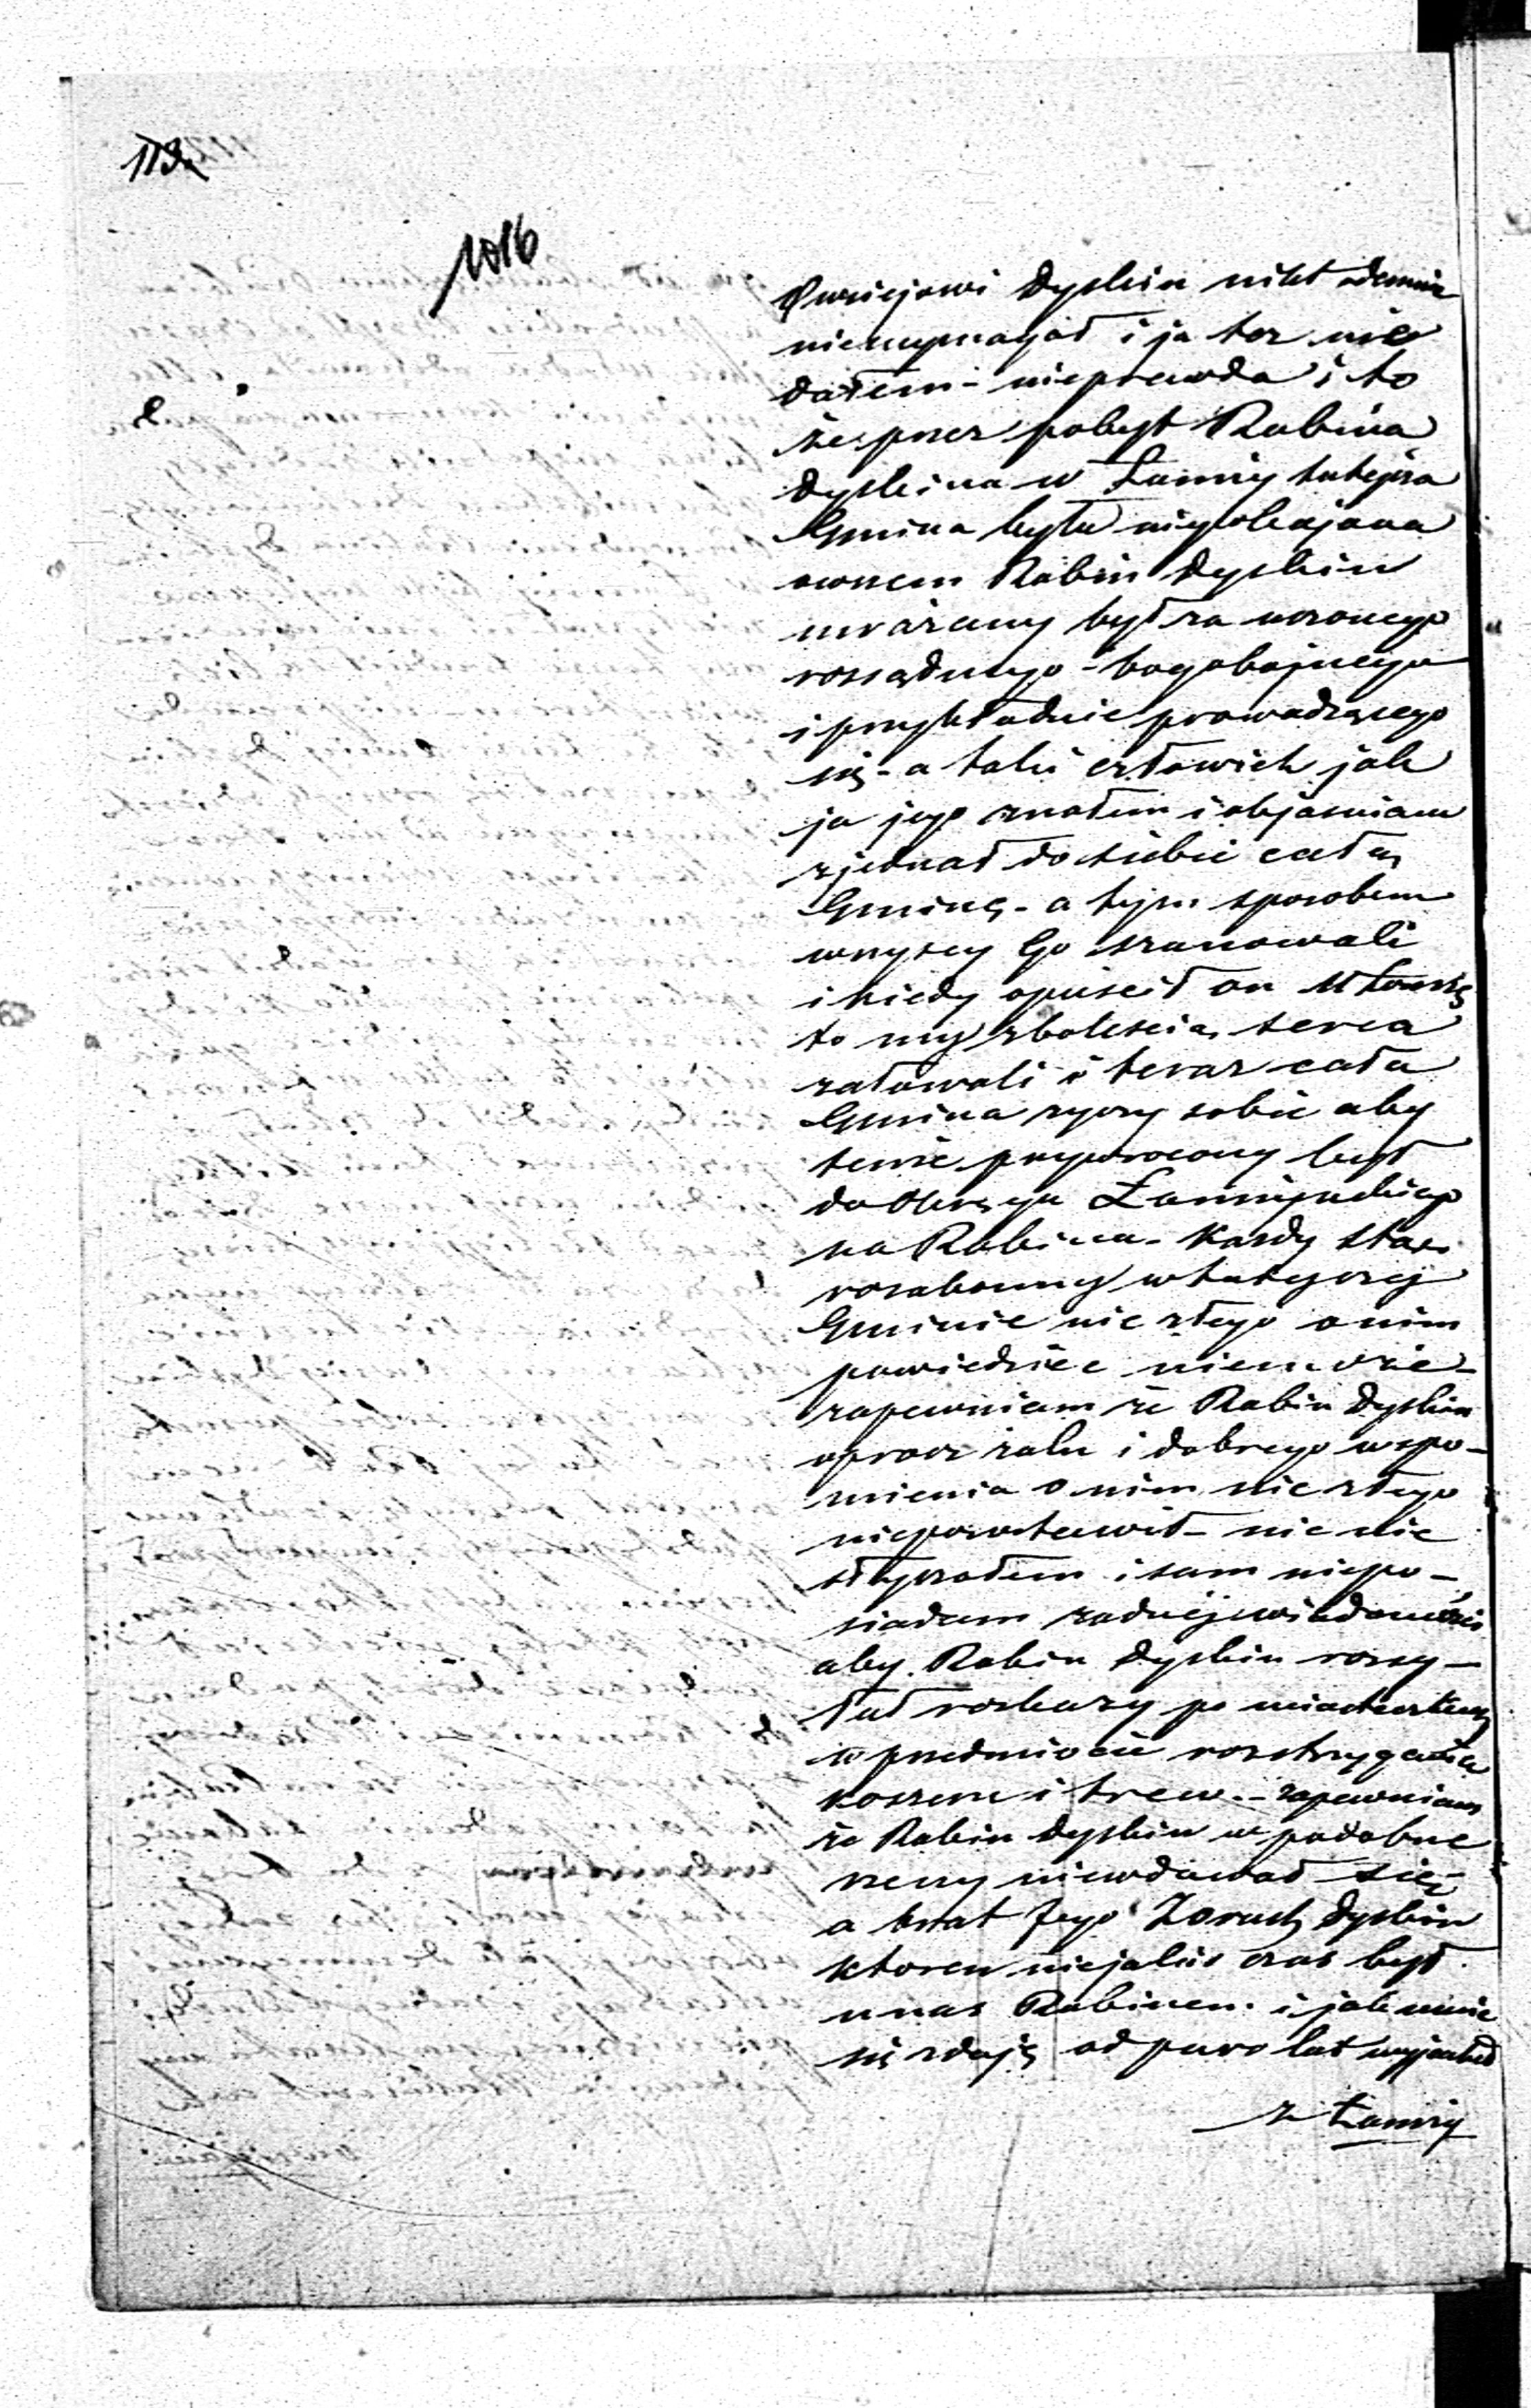 1016
Owsiejowi Dyskin nikt odemnie
niewymagał i ja tez nie
dałem - nieprawda i to
że przez pobyt Rabina
Dyskina w Łomży tutejsza
Gmina była niepokojona
owszem Rabin Dyskin
uważany był za uczonego
rossądnego - bogobojnego
i przykładnie prowadzącego
się - a taki człowiek jak
ja jego znałem i objasniam
zjednał do siebie całą
Gminę - a tym sposobem
wszyscy Go szanowali
i kiedy opuscił on Łomżę
to my z bolescią serca
załowali i teraz cała
Gmina zyczy sobie aby
tenże przywrocony był
do Okręgu Łomżynskiego
na Rabina. Kazdy Staro
rozakonny w tutejszej
Gminie nic złego o nim
powiedziec niemoże -
zapewniam że Rabin Dyskin
oprocz żalu i dobrego wspo-
mienia o nim nic złego
niepozostawił - nic nie
słyszałem i sam niepo-
siadam zadnej wiadomości
aby Rabin Dyskin rozsy-
łał rozkazy po miasteczkach
w przedmiocie rozstrzygania
koszeru i tref. - zapewniam
że Rabin Dyskin w podobne
rzeczy niewdawał się -
a brat Jego Zoruch Dyskin
ktoren niejakiś czas był
u nas Rabinem i jak mnie
się zdaję od paro lat wyjechał
z Łomży